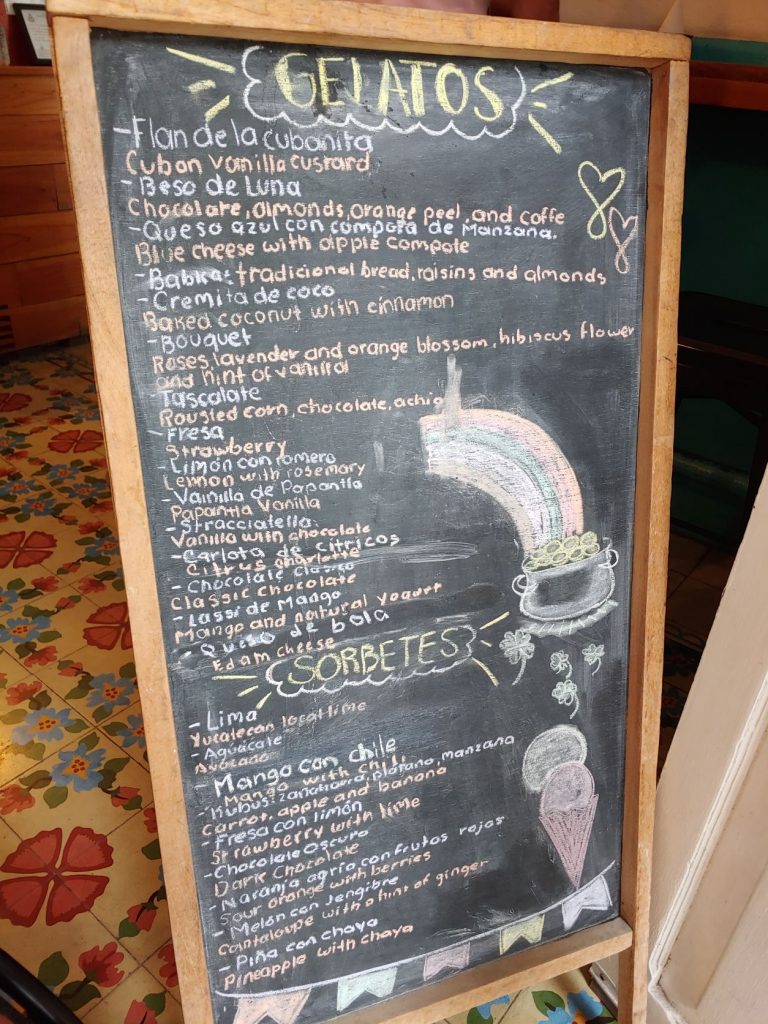 GELATOS
-Flan de la cubanita
Cuban vanilla custard
-Beso de Luna
Chocolate, almonds, orange peel, and coffe
-Queso azul con compota de Manzana.
Blue cheese with apple compote
-Babka: tradicional bread, raisins and almonds
-Cremita de coco
Baked coconut with cinnamon
-Bouquet
Roses, lavender and orange blossom, hibiscus flower
and hint of vanilla
-Tascalate
Rousted corn, chocolate, achio
-Fresa
Strawberry
-Limón con romero
Lemon with rosemary
-Vainilla de Papantla
Papantla Vanilla
-Stracciatella.
Vanilla with chocolate
-Carlota de citricos
Citrus charlotte
-Chocolate clasico
Classic Chocolate
-Lassi de Mango
Mango and natural yogurt
-Queso de bola
Edam cheese
SORBETES
-Lima
Yucatecan local lime
-Aguacate
Avocado
-Mango con chile
Mango with chili
-Kubus: zanahoria, platano, manzana
Carrot, apple and banana
-Fresa con limón
Strawberry with lime
-Chocolate Oscuro
Dark Chocolate
-Naranja agria con frutos rojos
Sour orange with berries
-Melón con jengibre
Cantaloupe with a hint of ginger
-Piña con chaya
Pineapple with chaya